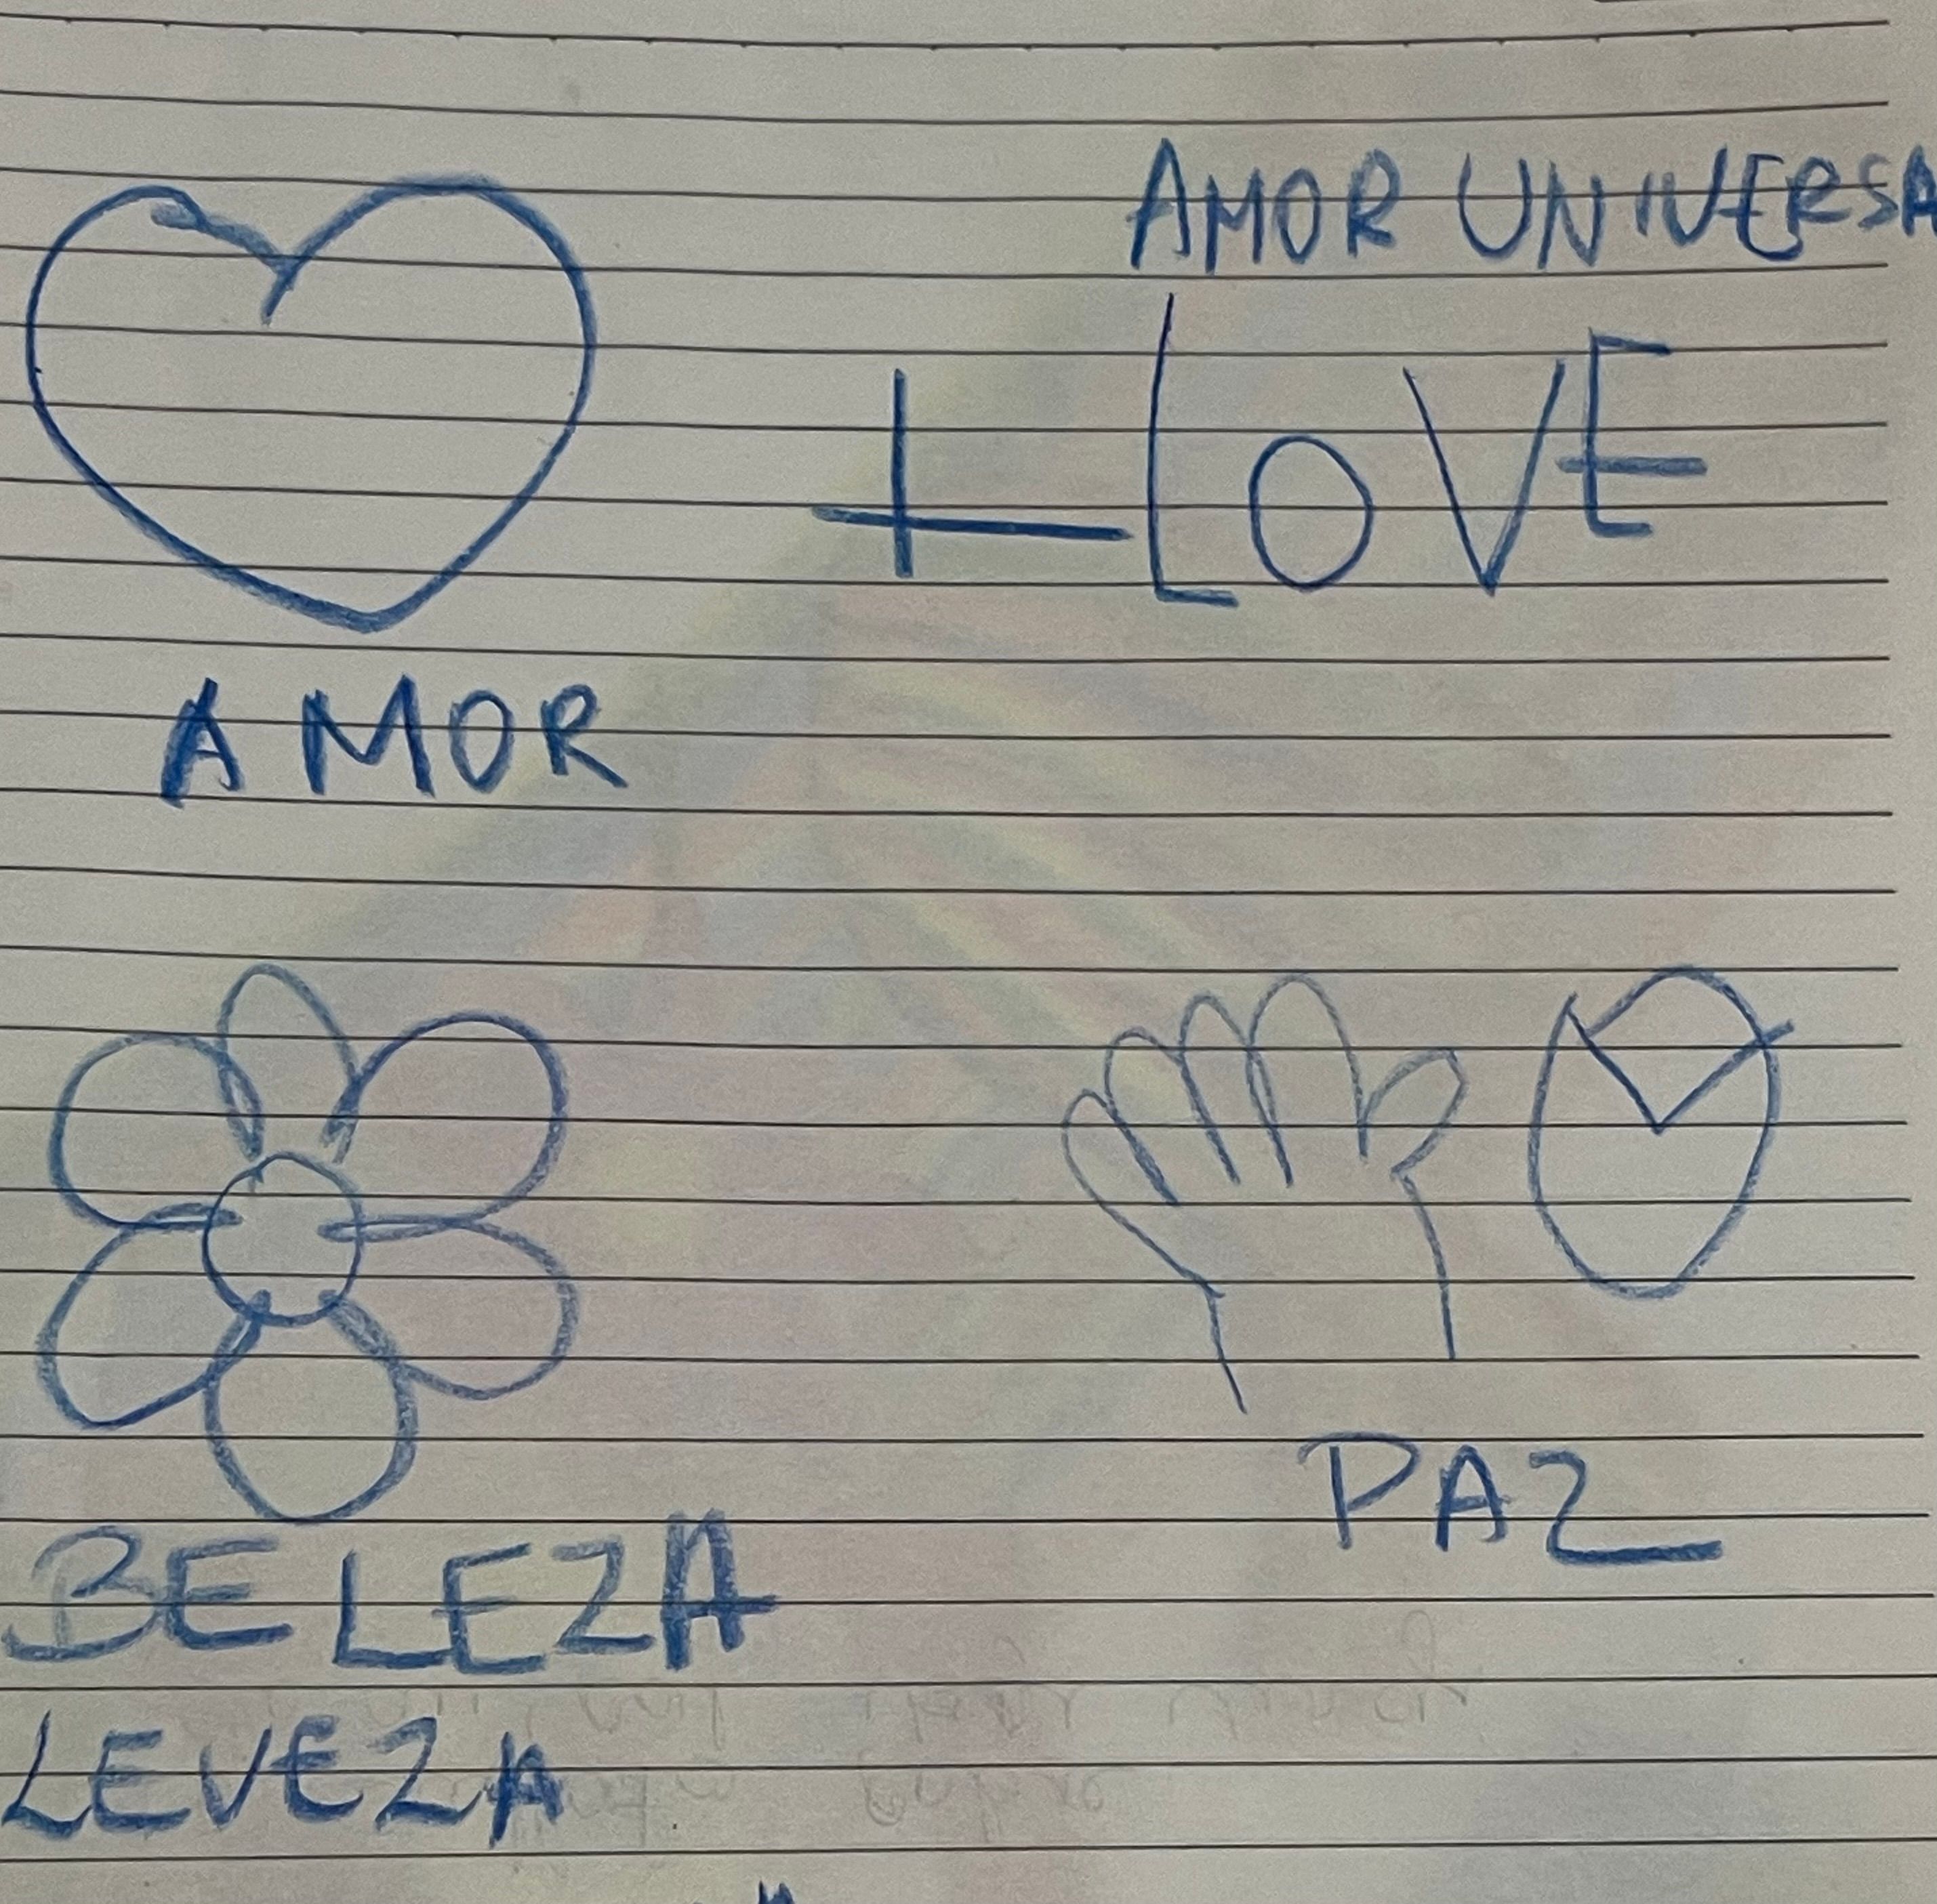 AMOR UNIVERSA
+ LOVE
AMOR
PAZ
BELEZA
LEVEZA